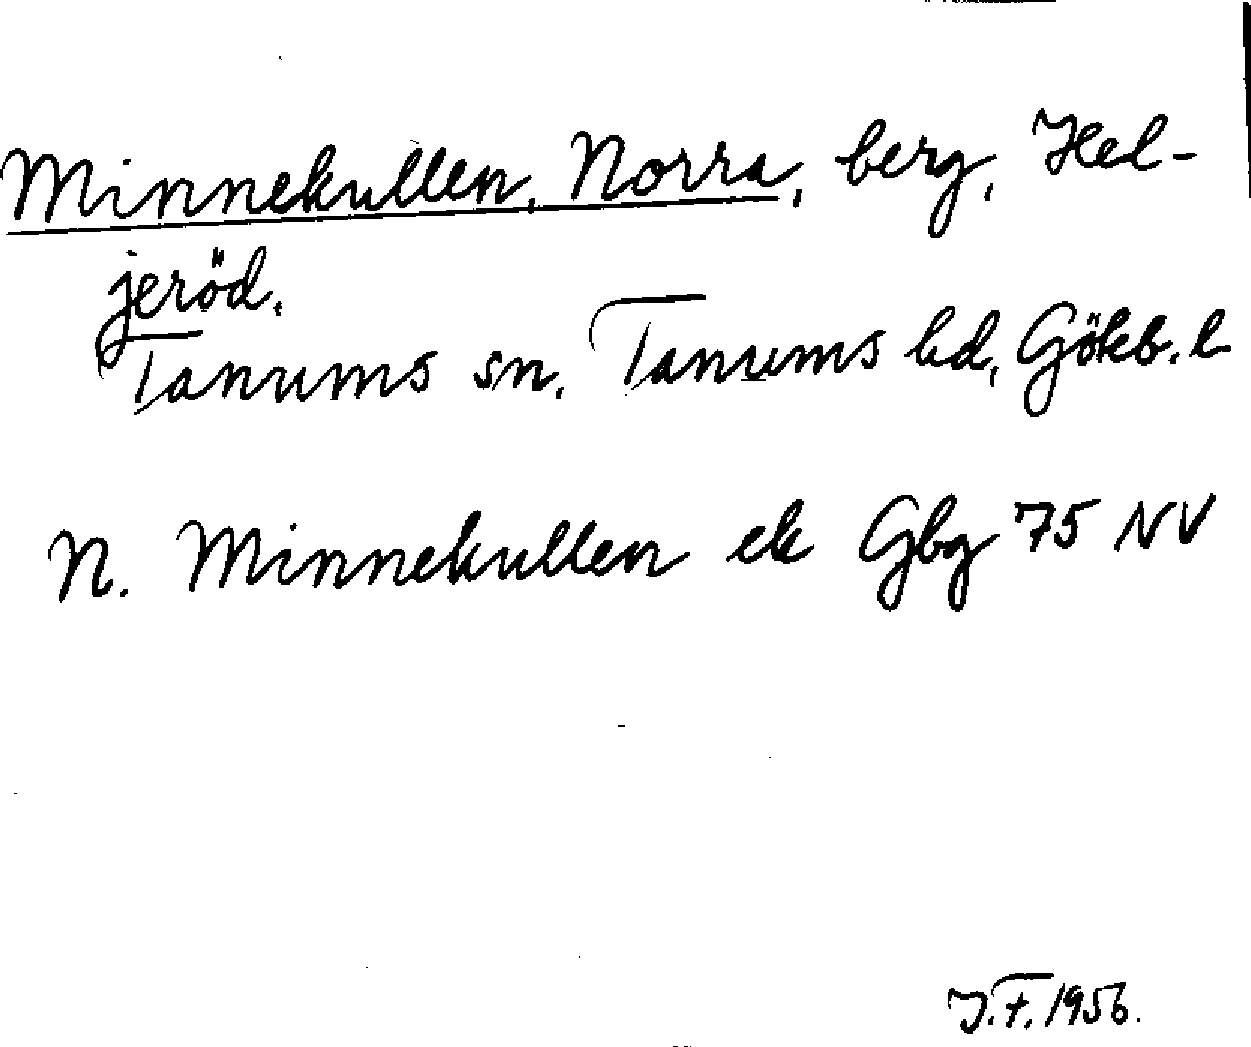 Minnekullen, Norra, berg, Hel-
jeröd.
Tanums sn. Tanums hd, Gökb. l
N. Minnekullen ek Gbg 75 NV
J.F. 1956.